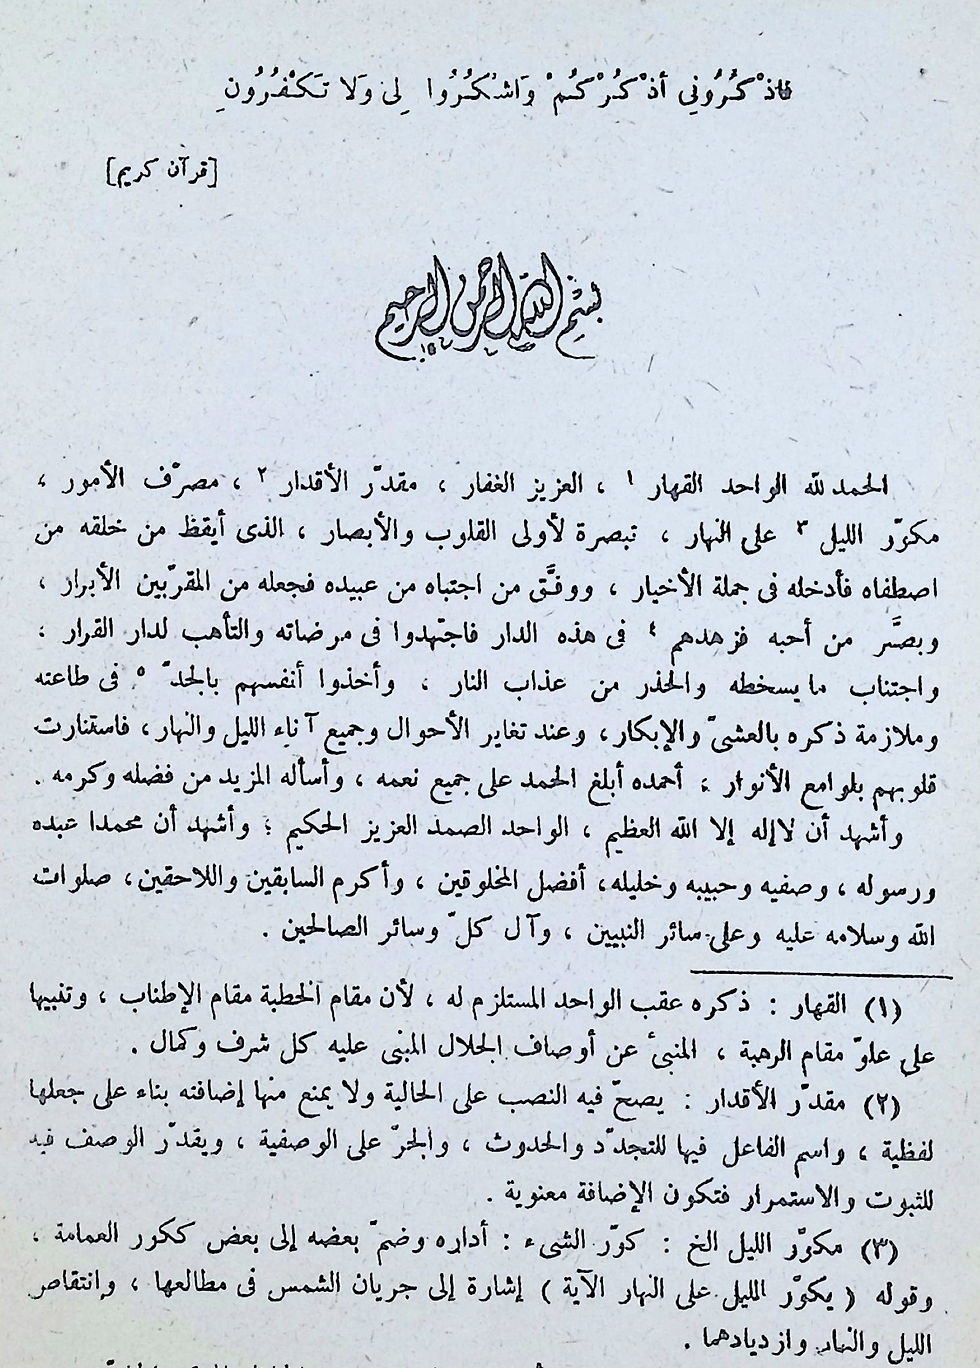 فاذْكُرُونِى أذْكُرْكُمْ وَاشْكُرُوا لِى وَلَا تَكْفُرُونِ
[قرآن كريم]
بسم الله الرحمن الرحيم
الحمد لله الواحد القهار ١ ، العزيز الغفار ، مقدّر الأقدار ٢ ، مصرّف الأمور ،
مكوّر الليل ٣ على النهار ، تبصرة لأولى القلوب والأبصار ، الذى أيقظ من خلقه من
اصطفاه فأدخله فى جملة الأخيار ، ووفَّق من اجتباه من عبيده فجعله من المقرّبين الأبرار ،
وبصَّر من أحبه فزهدهم ٤ فى هذه الدار فاجتهدوا فى مرضاته والتأهب لدار القرار ،
واجتناب ما يسخطه والحذر من عذاب النار ، وأخذوا أنفسهم بالجدّ ٥ فى طاعته
وملازمة ذكره بالعشىّ والإبكار ، وعند تغاير الأحوال وجميع آناء الليل والنهار ، فاستنارت
قلوبهم بلوامع الأنوار ؛ أحمده أبلغ الحمد على جميع نعمه ، وأسأله المزيد من فضله وكرمه .
وأشهد أن لا إله إلا الله العظيم ، الواحد الصمد العزيز الحكيم ؛ وأشهد أن محمدا عبده
ورسوله ، وصفيه وحبيبه وخليله ، أفضل المخلوقين ، وأكرم السابقين واللاحقين ، صلوات
الله وسلامه عليه وعلى سائر النبيين ، وآل كلّ وسائر الصالحين .
(١) القهار : ذكره عقب الواحد المستلزم له ، لأن مقام الخطبة مقام الإطناب ، وتنبيها
على علوّ مقام الرهبة ، المنبئ عن أوصاف الجلال المبنى عليه كل شرف وكمال .
(٢) مقدّر الأقدار : يصحّ فيه النصب على الحالية ولا يمنع منها إضافته بناء على جعلها
لفظية ، واسم الفاعل فيها للتجدّد والحدوث ، والجرّ على الوصفية ، ويقدّر الوصف فيه
للثبوت والاستمرار فتكون الإضافة معنوية .
(٣) مكوّر الليل الخ : كوّر الشىء : أداره وضمّ بعضه إلى بعض ككور العمامة ،
وقوله ( يكوّر الليل على النهار الآية ) إشارة إلى جريان الشمس فى مطالعها ، وانتقاص
الليل والنهار وازديادهما .